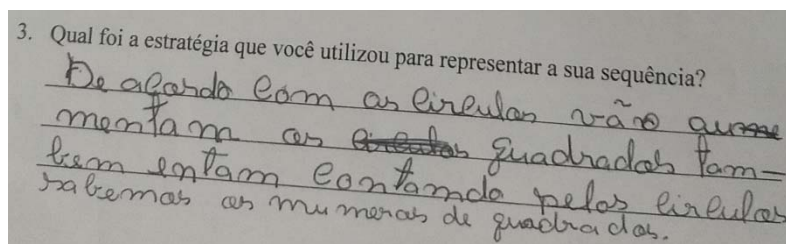 3. Qual foi a estratégia que você utilizou para representar a sua sequência?
De acordo com os circulos vão aume
mentam os quadrados tam-
bem entam contamdo pelos circulos
sabemos os mumeros de quadrados.